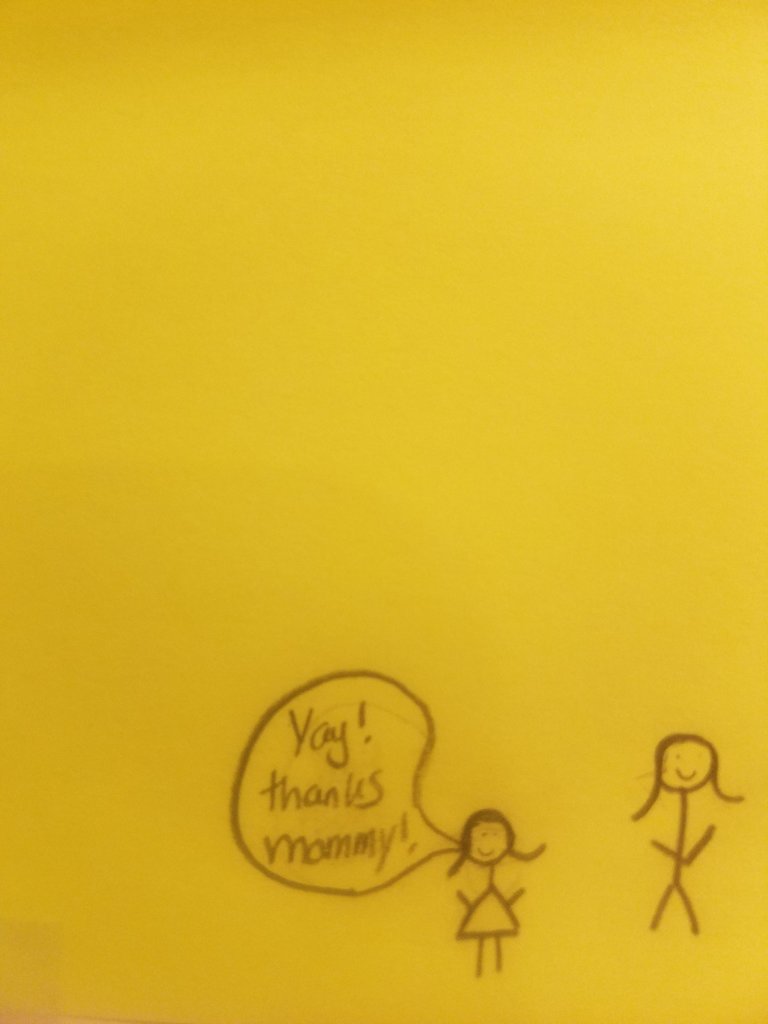 Yay!
thanks
mommy!